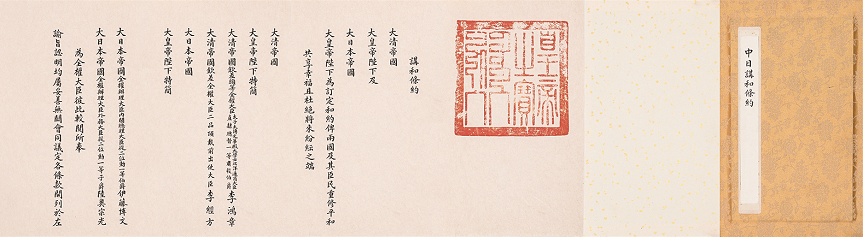 中日講和條約
皇帝之寶
講和條約
大清帝國
大皇帝陛下及
大日本帝國
大皇帝陛下為訂定和約俾兩國及其臣民重修平和
共享幸福且杜絕將來紛紜之端
大清帝國
大皇帝陛下特簡
大清帝國欽差頭等全權大臣太子太傅文華殿大學士北洋通商大臣直隸總督一等肅毅伯爵李鴻章
大清帝國欽差全權大臣二品頂戴前出使大臣李經方
大日本帝國
大皇帝陛下特簡
大日本帝國全權辦理大臣內閣總理大臣從二位勳一等伯爵伊藤博文
大日本帝國全權辦理大臣外務大臣從二位勳一等子爵陸奧宗光
為全權大臣彼此較閱所奉
諭旨認明均屬妥善無闕會同議定各條款開列於左